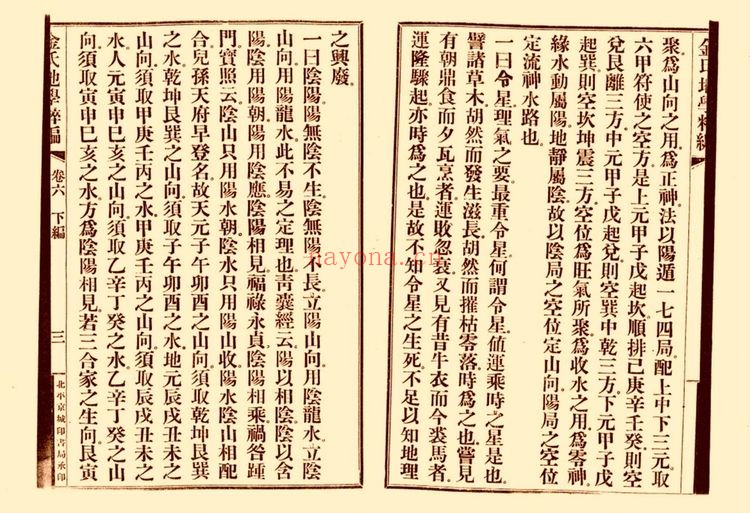 金氏地學粹編
聚爲山向之用爲正神法以陽遁一七四局配上中下三元取
六甲符使之空方是上元甲子戊起坎順排己庚辛壬癸則空
兌艮離三方中元甲子戊起兌則空巽中乾三方下元甲子戊
起巽則空坎坤震三方空位爲旺氣所聚爲收水之用爲零神
緣水動屬陽地靜屬陰故以陰局之空位定山向陽局之空位
定流神水路也
一曰令星理氣之要最重令星何謂令星値運乘時之星是也
譬諸草木胡然而發生滋長胡然而摧枯零落時爲之也嘗見
有朝鼎食而夕瓦烹者運敗忽衰又見有昔牛衣而今裘馬者
運隆驟起亦時爲之也是故不知令星之生死不足以知地理
之興廢
一曰陰陽陽無陰不生陰無陽不長立陽山向用陰龍水立陰
山向用陽龍水此不易之定理也靑囊經云陽以相陰陰以含
陽陽陰用陽朝陽用陰應陰陽相見福祿永貞陰陽相乘禍咎踵
門寶照云陰山只用陽水朝陰水只用陽山收陽水陰山相配
合兒孫天府早登名故天元子午卯酉之山向須取乾坤艮巽
之水乾坤艮巽之山向須取子午卯酉之水地元辰戌丑未之
山向須取甲庚壬丙之水甲庚壬丙之山向須取辰戌丑未之
水人元寅申巳亥之山向須取乙辛丁癸之水乙辛丁癸之山
向須取寅申巳亥之水方爲陰陽相見若三合家之生向艮寅
金氏地學粹編
卷六 下編
三
北平京城印書局承印
nayona.cn